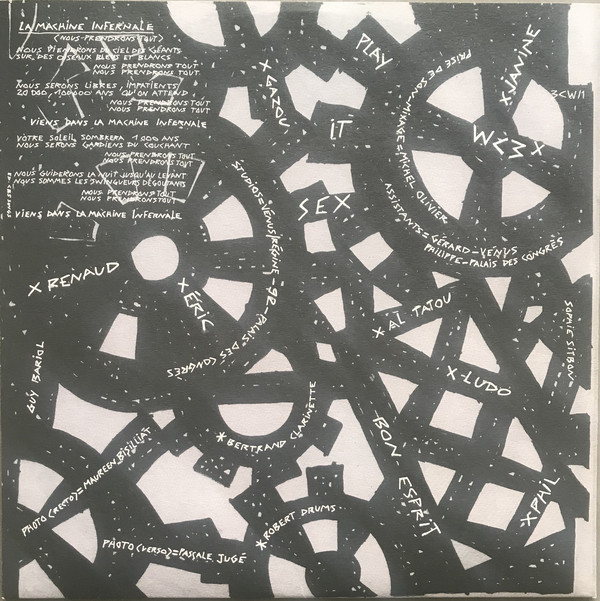 LA MACHINE INFERNALE
(NOUS PRENDRONS TOUT)
NOUS VIENDRONS DU CIEL DES GÉANTS
SUR DES OISEAUX BLEUS ET BLANCS
NOUS PRENDRONS TOUT
NOUS PRENDRONS TOUT
NOUS SERONS LIBRES, IMPATIENTS
20 000, 100 000 ANS QU'ON ATTEND
NOUS PRENDRONS TOUT
NOUS PRENDRONS TOUT
VIENS DANS LA MACHINE INFERNALE
VOTRE SOLEIL SOMBRERA 1 000 ANS
NOUS SERONS GARDIENS DU COUCHANT
NOUS PRENDRONS TOUT
NOUS PRENDRONS TOUT
NOUS GUIDERONS LA NUIT JUSQU'AU LEVANT
NOUS SOMMES LES SWINGUEURS DÉGOUTANTS
NOUS PRENDRONS TOUT
NOUS PRENDRONS TOUT
VIENS DANS LA MACHINE INFERNALE
PLAY
IT
SEX
PRISE DE SON-MIXAGE=MICHEL OLIVIER
ASSISTANTS=GÉRARD-VÉNUS
PHILIPPE-PALAIS DES CONGRÈS
X JANINE
3<W/1
STUDIOS=VÉNUS/RÉGINE-92-PALAIS DES CONGRÈS
X RENAUD
X ÉRIC
X AL TATOU
SOPHIE SITBON=
X-LUDO
GUY BARIOL
*BERTRAND CLARINETTE
BON-ESPRIT
X PHIL
PHOTO (RECTO)=MAUREEN BISILLIAT
*ROBERT DRUMS
PHOTO (VERSO)=PASCALE JUGÉ